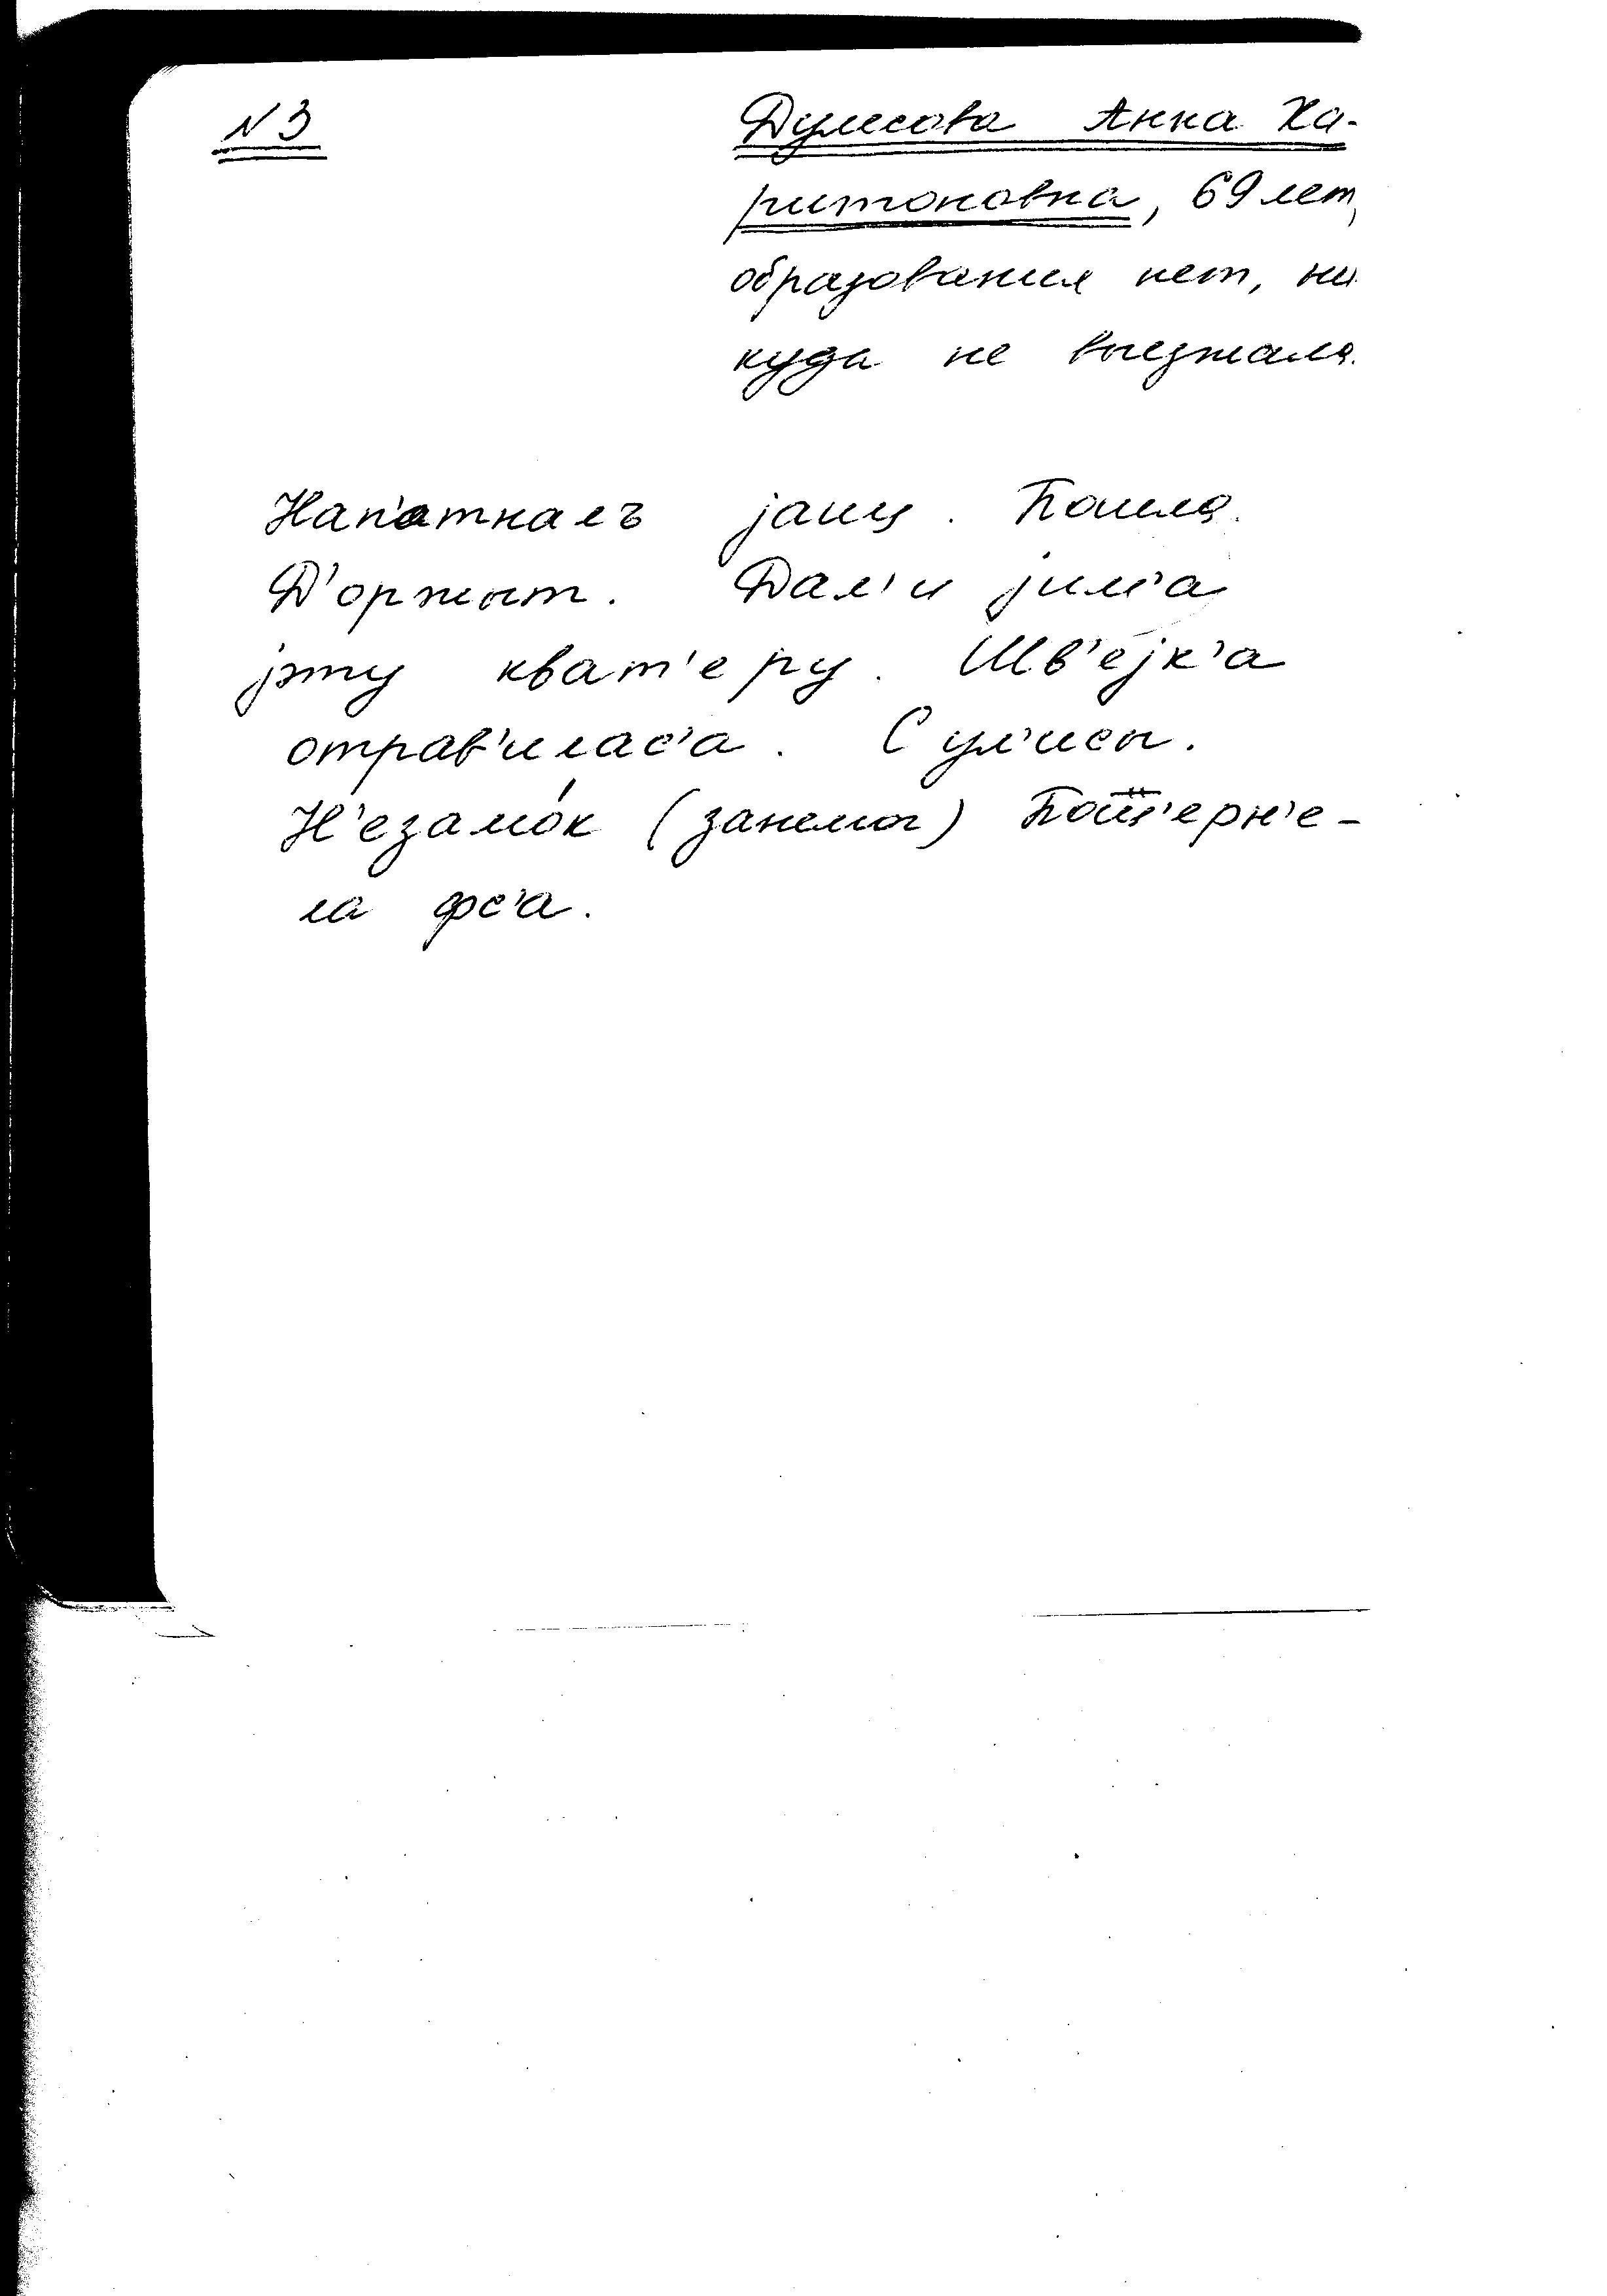 N 3
Думсова Анна Ха-
ритоновна, 69 лет,
образования нет, ни
куда не выезжала.
Нап'аткалъ јашч. Пошла.
Д'оржыт. Дал'и јим'а
јэту кват'еру. Шв'ејк'а
отрав'илас'а. С ул'исы.
Н'езамо́к (занемог) Пот'ерн'е-
ла фс'а.